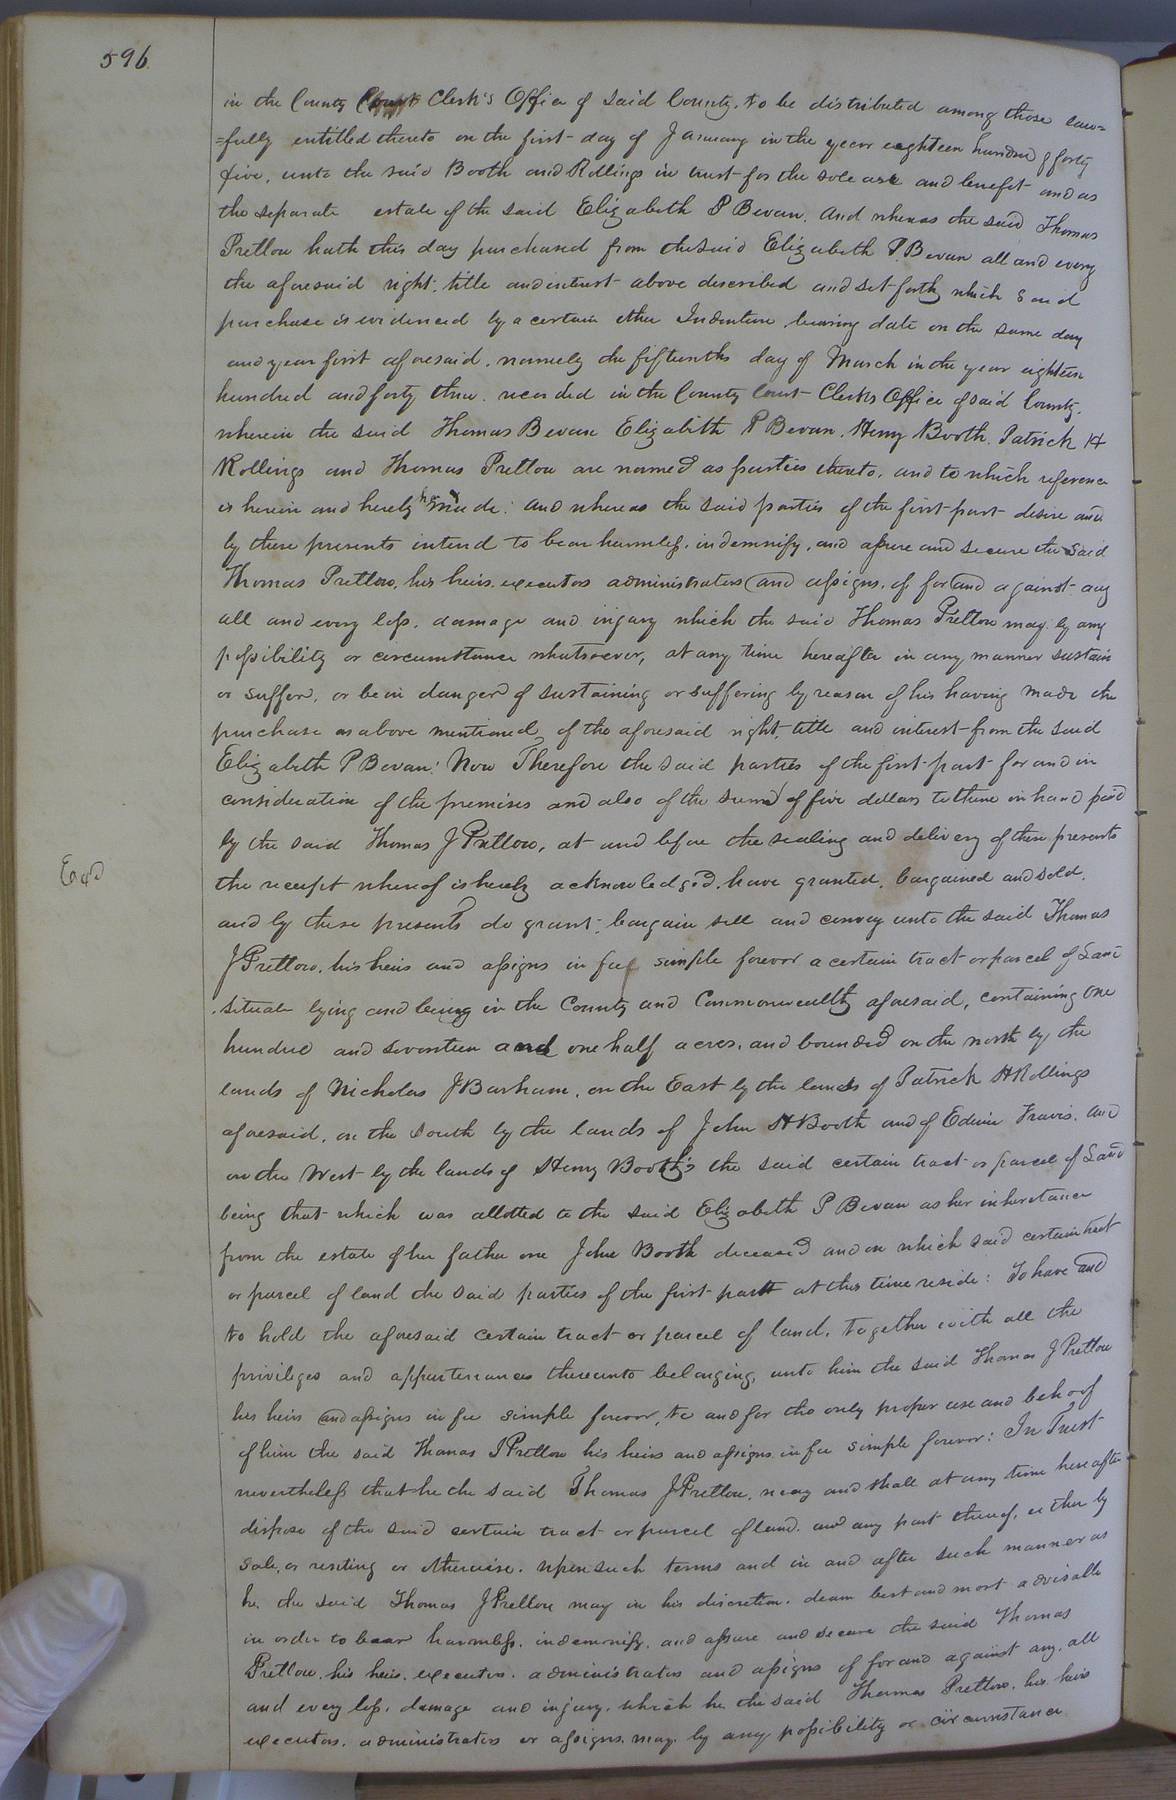 596.
in the County Court Clerk's Office of said County. to be distributed among those law=
=fully entitled thereto on the first day of January in the year eighteen hundred & forty
five, unto the said Booth and Rollings in trust for the sole use and benefit and as
the separate estate of the said Elizabeth P Bevan. And whereas the said Thomas
Pretlow hath this day purchased from the said Elizabeth P. Bevan all and every
the aforesaid right, title and interest above described and set forth, which said
purchase is evidenced by a certain other Indenture, bearing date on the same day
and year first aforesaid, namely the fifteenth day of March in the year eighteen
hundred and forty three. recorded in the County Court Clerks Office of said County.
wherein the said Thomas Bevan Elizabeth P Bevan. Henry Booth. Patrick H
Rollings and Thomas Pretlow are named as parties thereto, and to which reference
is herein and hereby made: and whereas the said parties of the first part desire and
by these presents intend to bear harmless, indemnify, and assure and secure the said
Thomas Pretlow, his heirs, executors administrators and assigns, of for and against any
all and every loss, damage and injury which the said Thomas Pretlow may by any
possibility or circumstance whatsoever, at any time hereafter in any manner sustain
or suffer, or be in danger of sustaining or suffering by reason of his having made the
purchase as above mentioned of the aforesaid right, title and interest from the said
Elizabeth P Bevan: Now Therefore the said parties of the first part for and in
consideration of the premises and also of the sum of five dollars to them in hand paid
by the said Thomas J Pretlow, at and before the sealing and delivery of these presents
Exd
the receipt whereof is hereby acknowledged. have granted, bargained and sold,
and by these presents do grant, bargain sell and convey unto the said Thomas
J Pretlow, his heirs and assigns in fee simple forever a certain tract or parcel of Land
situate lying and being in the County and Commonwealth aforesaid, containing one
hundred and seventeen and one half acres, and bounded on the north by the
lands of Nicholas J Barham, on the East by the lands of Patrick H Rollings
aforesaid, on the South by the lands of John H Booth and of Edwin Travis. and
on the West by the lands of Henry Booth; the said certain tract or parcel of Land
being that which was allotted to the said Elizabeth P Bevan as her inheritance
from the estate of her father one John Booth deceased and on which said certain tract
or parcel of land the said parties of the first part at this time reside: To have and
to hold the aforesaid certain tract or parcel of land, together with all the
privileges and appurtenances thereunto belonging, unto him the said Thomas J Pretlow
his heirs and assigns in fee simple forever, to and for the only proper use and behoof
of him the said Thomas J Pretlow his heirs and assigns in fee simple forever: In Trust
nevertheless that he the said Thomas J Pretlow, may and shall at any time hereafter
dispose of the said certain tract or parcel of land, and any part thereof, either by
sale, or renting or otherwise, upon such terms and in and after such manner as
he the said Thomas J Pretlow may in his discretion, deem best and most advisable
in order to bear harmless, indemnify, and assure and secure the said Thomas
Pretlow, his heirs, executors, administrators and assigns of for and against any, all
and every loss, damage and injury, which he the said Thomas Pretlow, his heirs
executors, administrators or assigns, may, by any possibility or circumstance